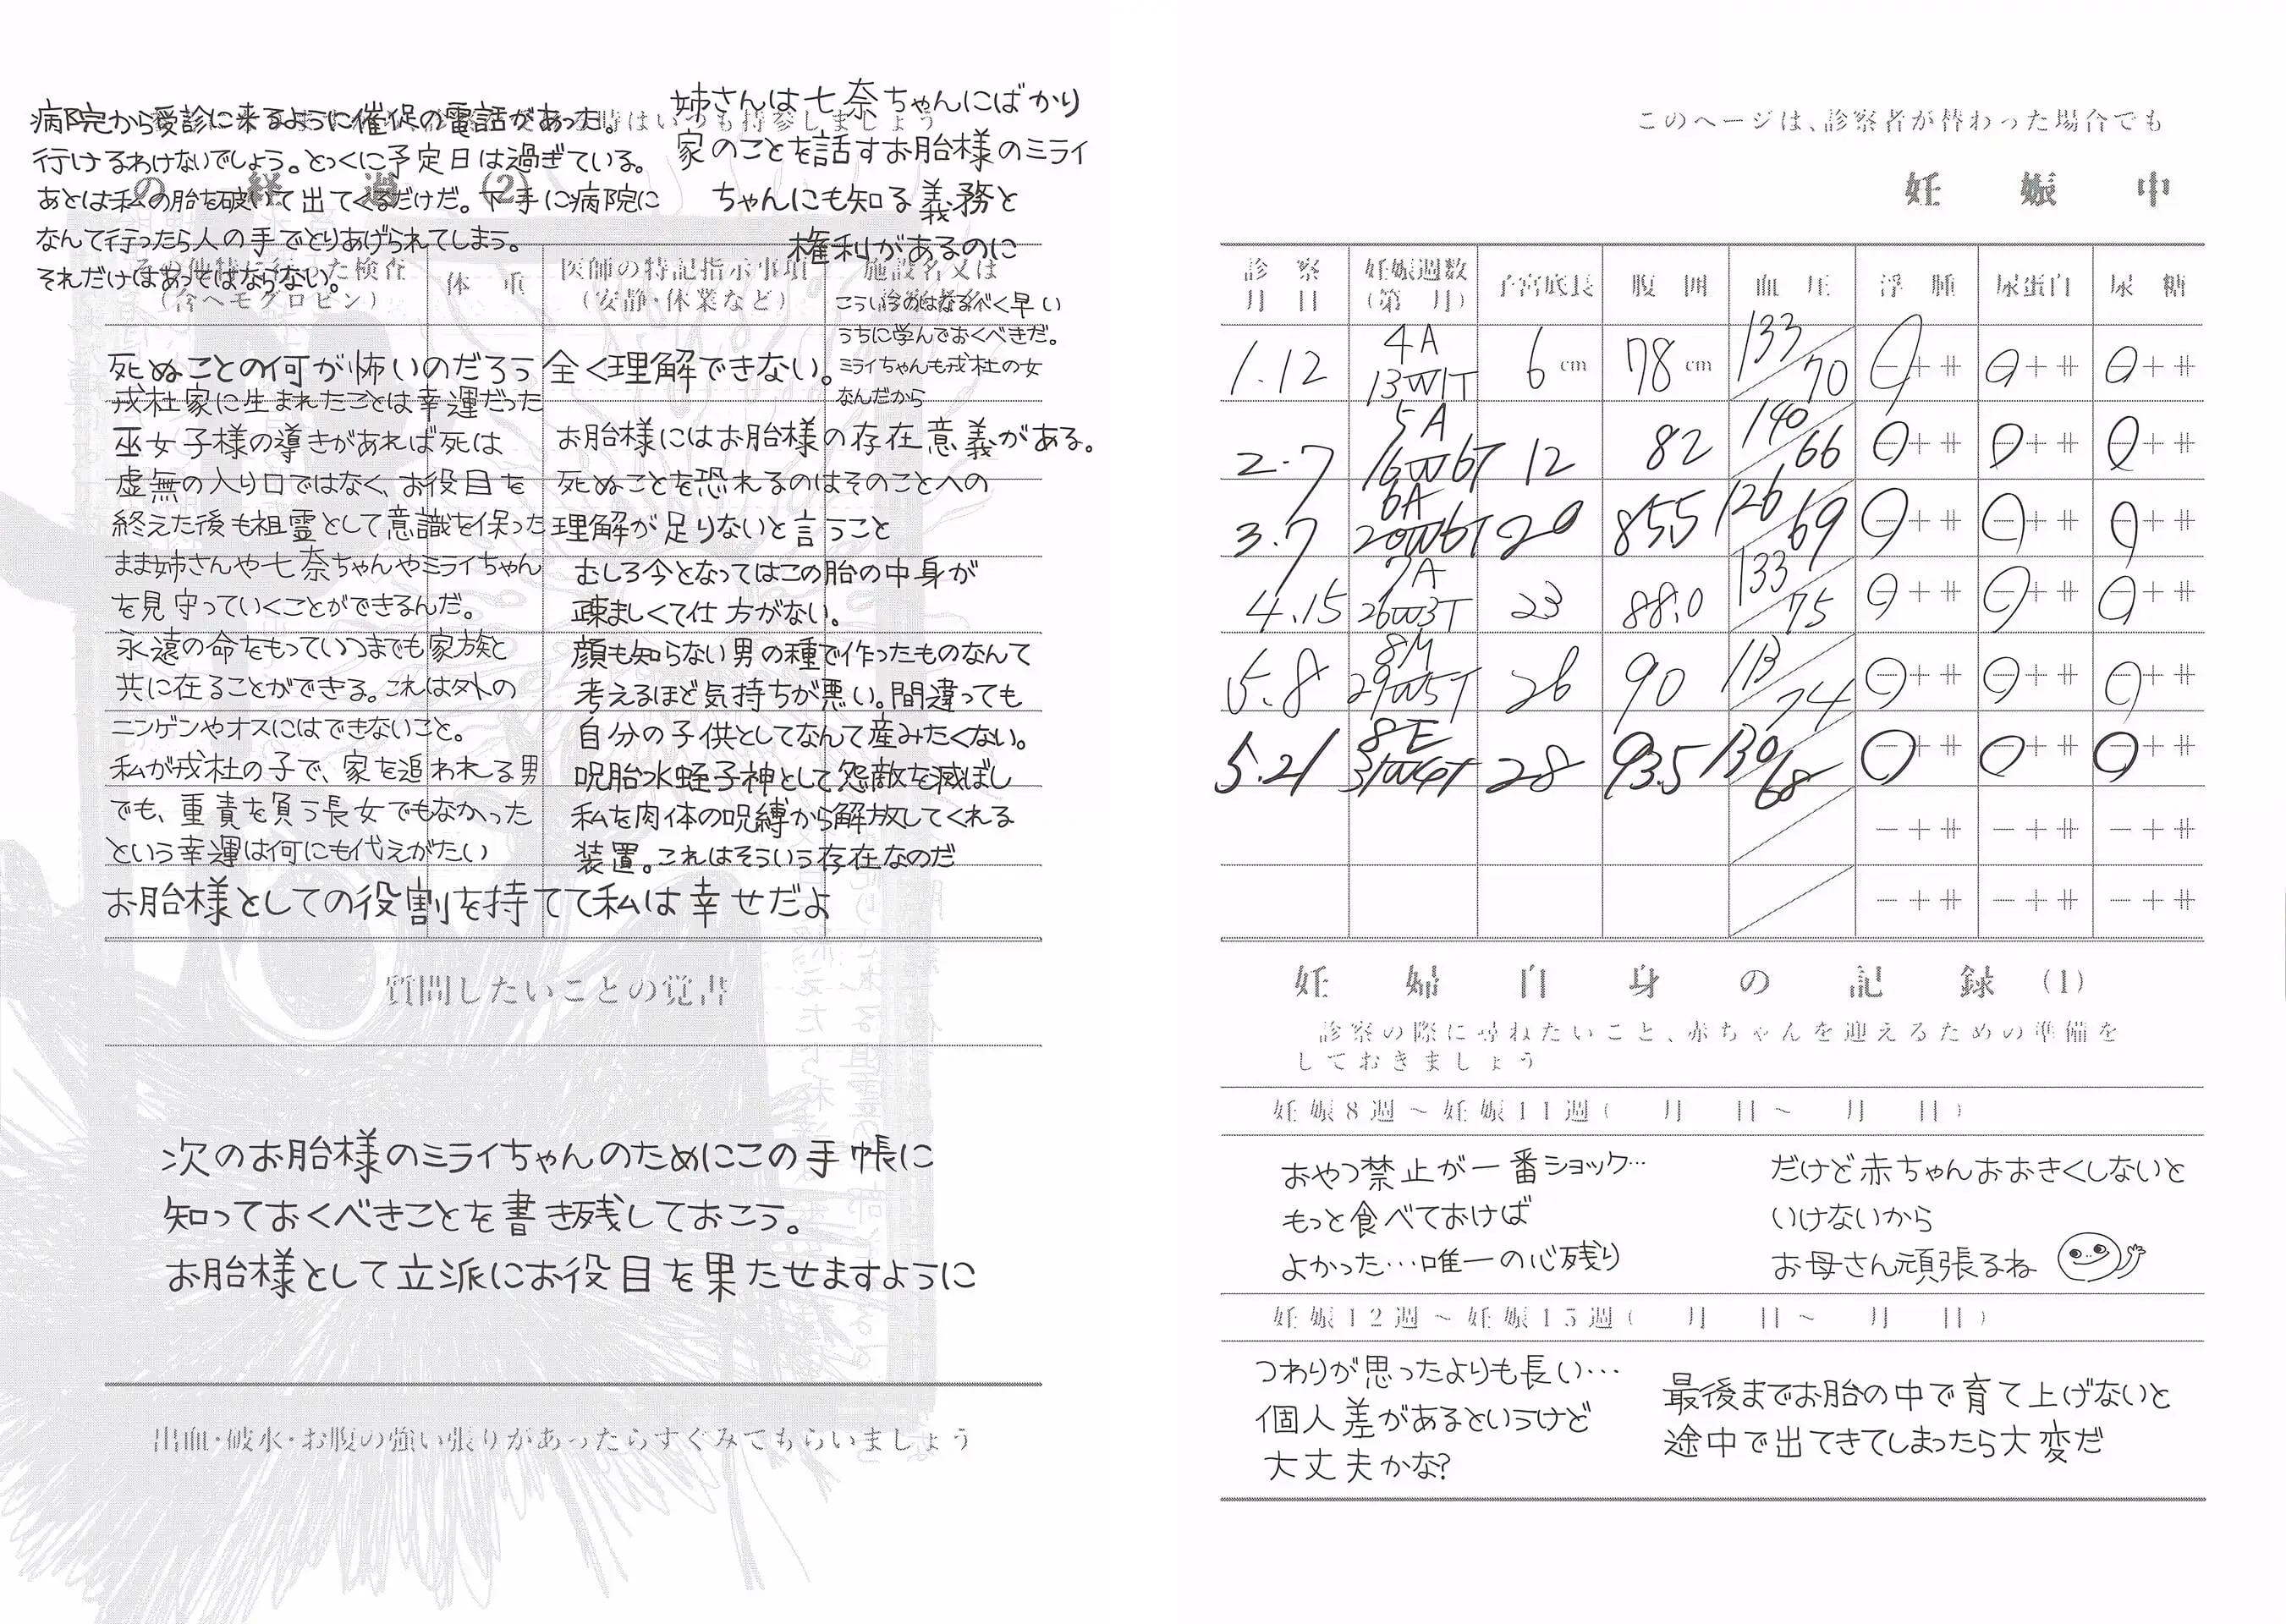 病院から受診に来るように催促の電話があった。
行けるわけないでしょう。とっくに予定日は過ぎている。
あとは私の胎を破いて出てくるだけだ。下手に病院に
なんて行ったら人の手でとりあげられてしまう。
それだけはあってはならない。
姉さんは七奈ちゃんにばかり
家のことを話すお胎様のミライ
ちゃんにも知る義務と
権利があるのに
こういうのはなるべく早い
うちに学んでおくべきだ。
ミライちゃんも戎杜の女
なんだから
時はいつも持参しましょう
の経過(2)
その他特に行った検査
(含ヘモグロビン)
体重
医師の特記指示事項
(安静・休業など)
施設名又は
死ぬことの何が怖いのだろう全く理解できない。
戎杜家に生まれたことは幸運だった
巫女子様の導きがあれば死は
虚無の入り口ではなく、お役目を
終えた後も祖霊として意識を保った
まま姉さんや七奈ちゃんやミライちゃん
を見守っていくことができるんだ。
永遠の命をもっていつまでも家族と
共に在ることができる。これは外の
ニンゲンやオスにはできないこと。
私が戎杜の子で、家を追われる男
でも、重責を負う長女でもなかった
という幸運は何にも代えがたい
お胎様としての役割を持てて私は幸せだよ
お胎様にはお胎様の存在意義がある。
死ぬことを恐れるのはそのことへの
理解が足りないと言うこと
むしろ今となってはこの胎の中身が
疎ましくて仕方がない。
顔も知らない男の種で作ったものなんて
考えるほど気持ちが悪い。間違っても
自分の子供としてなんて産みたくない。
呪胎水蛭子神として怨敵を滅ぼし
私を肉体の呪縛から解放してくれる
装置。これはそういう存在なのだ
質問したいことの覚書
次のお胎様のミライちゃんのためにこの手帳に
知っておくべきことを書き残しておこう。
お胎様として立派にお役目を果たせますように
出血・破水・お腹の強い張りがあったらすぐみてもらいましょう
このページは、診察者が替わった場合でも
妊娠中
診察月日 妊娠週数(第 月) 子宮底長 腹囲 血圧 浮腫 尿蛋白 尿糖
1.12 4A 13W1T 6cm 78cm 133/70 −+⧺ −+⧺ −+⧺
2.7 5A 16W6T 12 82 140/66 −+⧺ −+⧺ −+⧺
3.7 6A 20W6T 20 855 126/69 −+⧺ −+⧺ −+⧺
4.15 7A 26W3T 23 88.0 133/75 −+⧺ −+⧺ −+⧺
5.8 8M 29W5T 26 90 113/74 −+⧺ −+⧺ −+⧺
5.21 8E 31W4T 28 93.5 130/68 −+⧺ −+⧺ −+⧺
−+⧺ −+⧺ −+⧺
−+⧺ −+⧺ −+⧺
妊婦自身の記録(1)
診察の際に尋ねたいこと、赤ちゃんを迎えるための準備を
しておきましょう
妊娠8週~妊娠11週( 月 日~ 月 日)
おやつ禁止が一番ショック…
もっと食べておけば
よかった…唯一の心残り
だけど赤ちゃんおおきくしないと
いけないから
お母さん頑張るね
妊娠12週~妊娠15週( 月 日~ 月 日)
つわりが思ったよりも長い…
個人差があるというけど
大丈夫かな?
最後までお胎の中で育て上げないと
途中で出てきてしまったら大変だ